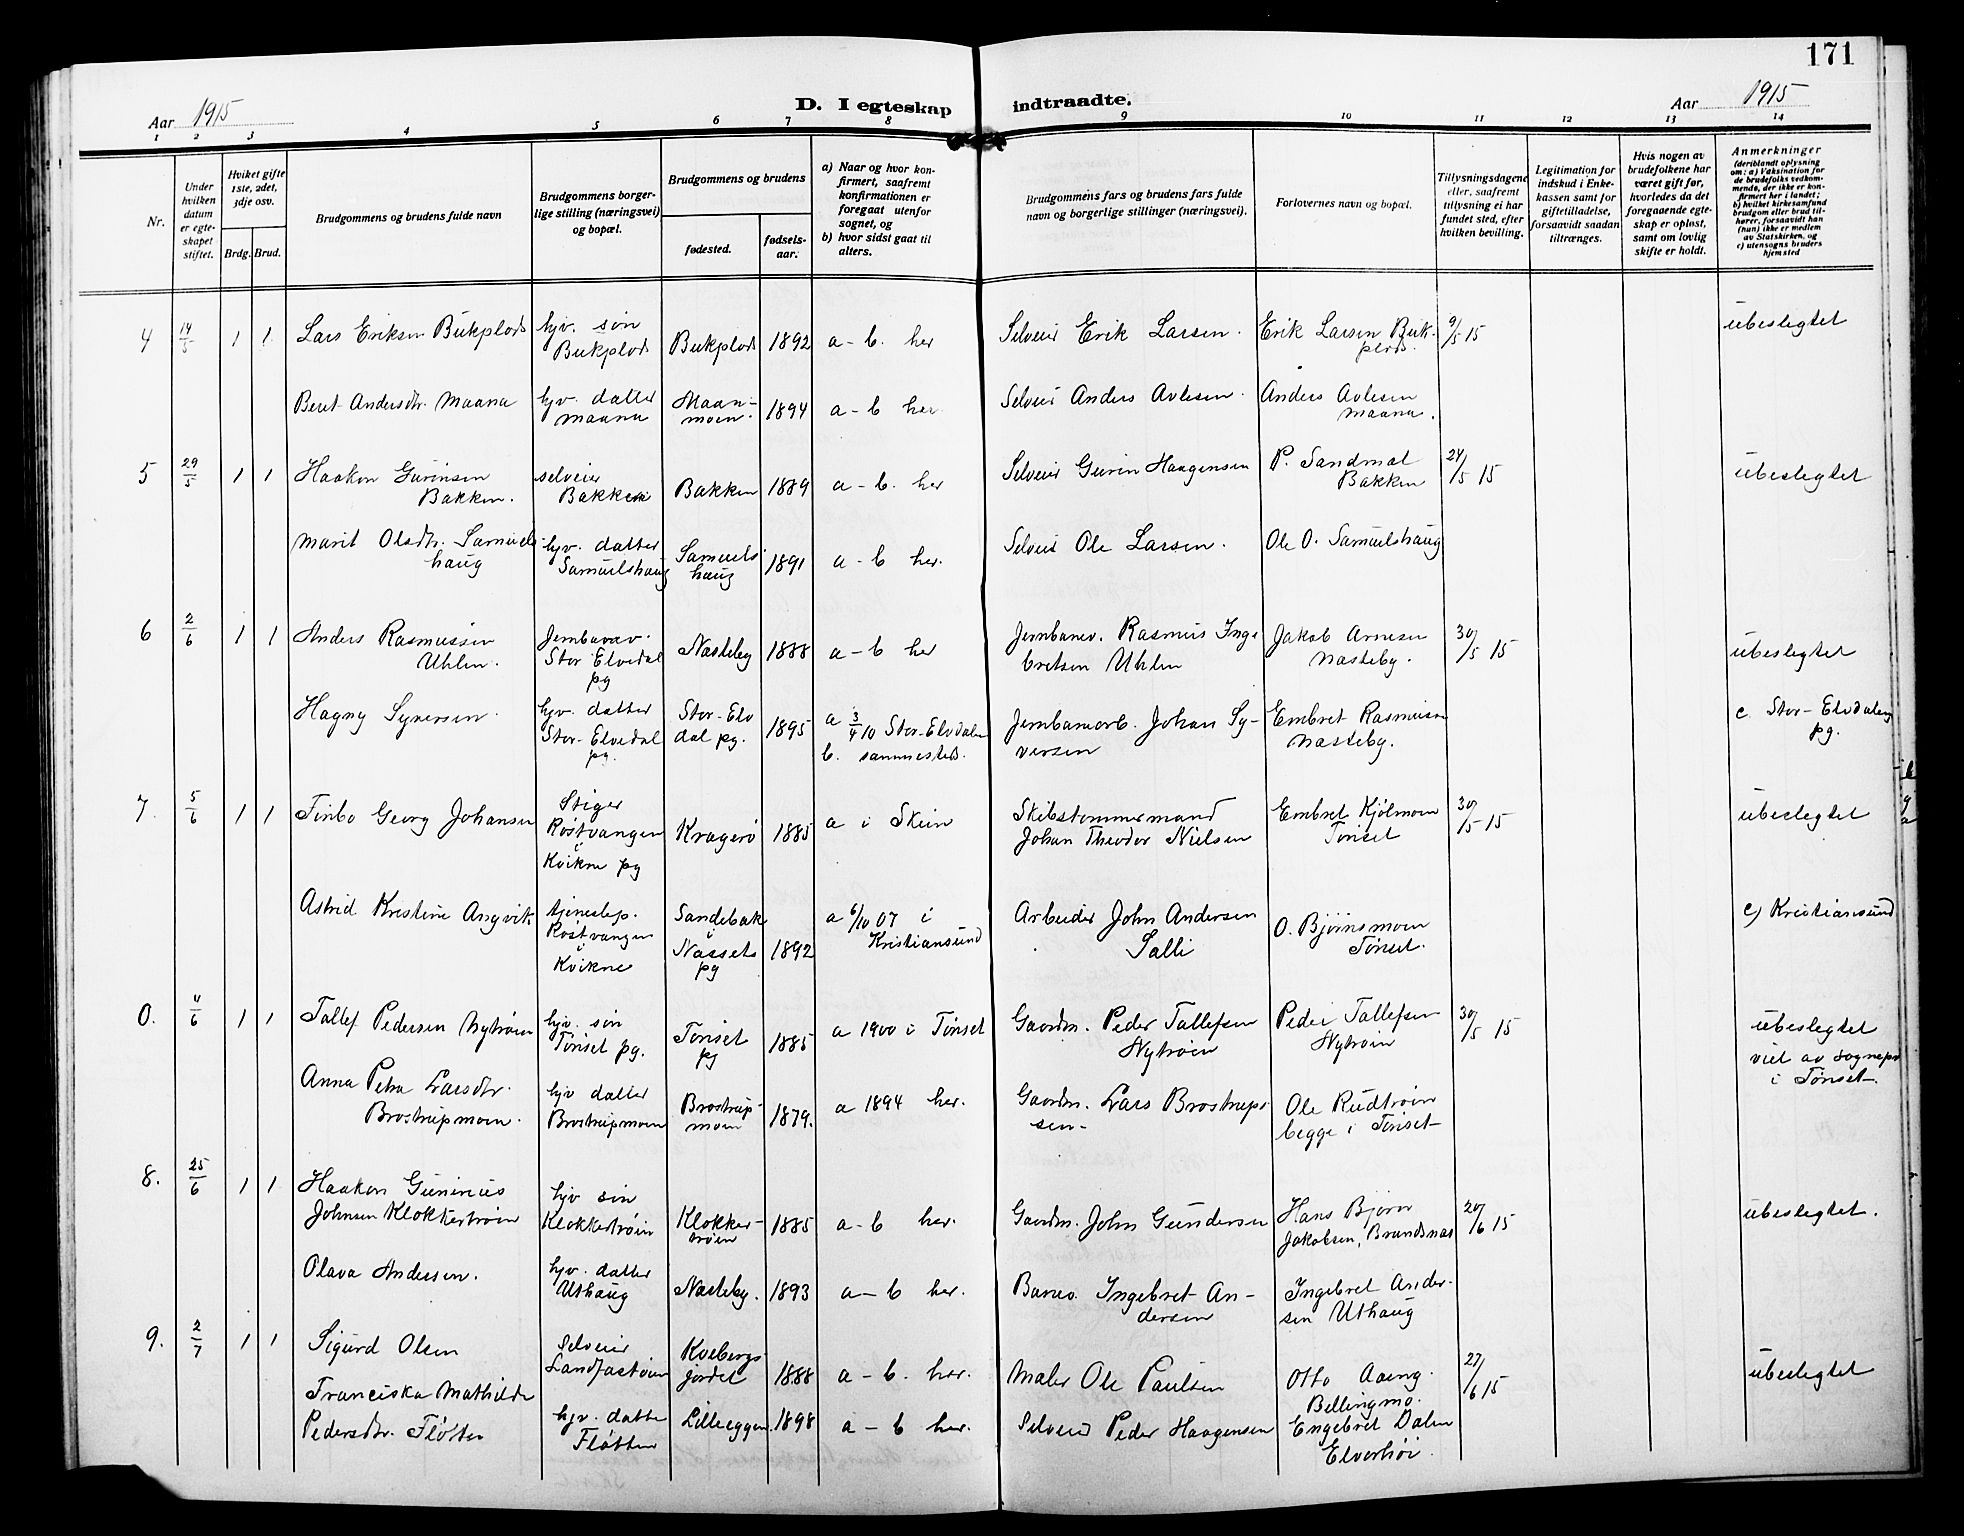 171
Aar 1915
D. I egteskap indtraadte.
Aar 1915
1 2 3 4 5 6 7 8 9 10 11 12 13 14
Nr.
Under hvilken datum er egteskapet stiftet.
Hviket gifte 1ste, 2det, 3dje osv.
Brdg. Brud.
Brudgommens og brudens fulde navn
Brudgommens borgerlige stilling (næringsvei) og bopæl.
Brudgommens og brudens
fødested.
fødselsaar.
a) Naar og hvor konfirmert, saafremt konfirmationen er foregaat utenfor sognet, og
b) hvor sidst gaat til alters.
Brudgommens fars og brudens fars fulde navn og borgerlige stillinger (næringsvei).
Forlovernes navn og bopæl.
Tillysningsdagene eller, saafremt tillysning ei har fundet sted, efter hvilken bevilling.
Legitimation for indskud i Enkekassen samt for giftetilladelse, forsaavidt saadan tiltrænges.
Hvis nogen av brudefolkene har været gift før, hvorledes da det foregaaende egteskap er opløst, samt om lovlig skifte er holdt.
Anmerkninger (deriblandt oplysning om: a) Vaksination for de brudefolks vedkommende, der ikke er konfirmert her i landet; b) hvilket kirkesamfund brudgom eller brud tilhører, forsaavidt han (hun) ikke er medlem av Statskirken, og c) utensogns bruders hjemsted
4 14/5 1 1 Lars Eriksen Bukplads hjv. søn Bukplads Bukplads 1892 a - b. her Selveier Erik Larsen. Erik Larsen Bukplads. 9/5 15 ubeslegtet
Beret Andersdtr. Maana hjv. datter Maana Maanmoen. 1894 a - b her. Selveier Anders Avlesen. Anders Avlesen Maana.
5 29/5 1 1 Haakon Gurinsen Bakken. selveier Bakken Bakken 1889 a - b. her Selveier Gurin Haagensen P. Sandmæl Bakken 24/5 15 ubeslegtet
Marit Olsdtr. Samuelshaug hjv. datter Samuelshaug Samuelshaug 1891 a - b her. Selveier Ole Larsen. Ole O. Samuelshaug
6 2/6 1 1 Anders Rasmussen Uhlen. Jernbanev. Stor Elvedal pg Nasteby 1888 a - b her Jernbanev. Rasmus Ingebretsen Uhlen Jakob Arnesen Nasteby. 30/5 15 ubeslegtet
Hagny Syversen. hjv. datter Stor-Elvedal pg. Stor-Elvdal pg. 1895 a 3/4 10 Stor-Elvdalen b. sammesteds. Jernbanearb. Johan Syversen Embret Rasmussen Nasteby. c. Stor-Elvdalen pg.
7. 5/6 1 1 Finbo Georg Johansen Stiger Røstvangen i Kvikne pg Kragerø 1885 a i Skien Skibstømmermand Johan Theodor Nielsen Embret Kjølmoen Tønset 30/5 15 ubeslegtet
Astrid Kristine Angvik tjenestep. Røstvangen i Kvikne Sandebak i Næssets pg 1892 a 6/10 07 i Kristiansund Arbeider John Andersen Salli O. Bjørnsmoen Tønset. c) Kristiansund
0. 11/6 1 1 Tallef Pedersen Nytrøen hjv. søn Tønset pg. Tønset pg 1885 a 1900 i Tønset Gaardm. Peder Tallefsen Nytrøen Peder Tallefsen Nytrøen 30/5 15 ubeslegtet viet av sognepr i Tønset
Anna Petra Larsdtr. Brostrupmoen. hjv datter Brostrupmoen Brostrupmoen 1879. a 1894 her. Gaardm. Lars Brostrupsen - Ole Rudtrøen begge i Tønset
8. 25/6 1 1 Haakon Guninius Johnsen Klokkertrøen hjv søn Klokkertrøen Klokkertrøen 1885 a - b her. Gaardm. John Gundersen Hans Bjørn Jakobsen, Brandsnas 20/6 15 ubeslegtet.
Olava Andersen. hjv. datter Uthaug Nasteby. 1893 a - b her. Banev. Ingebret Andersen Ingebret Andersen Uthaug
9. 2/7 1 1 Sigurd Olsen Selveier Landfastøien Kvebergsjordet 1888 a - b. her. Maler Ole Paulsen Otto Aaeng. Bellingmo. 27/6 15 ubeslegtet
Franciska Mathilde Pedersdtr. Fløtten hjv. datter Fløtten Lilleeggen. 1898 a - b her. Selveier Peder Haagensen Engebret Dalen Elverhøi.